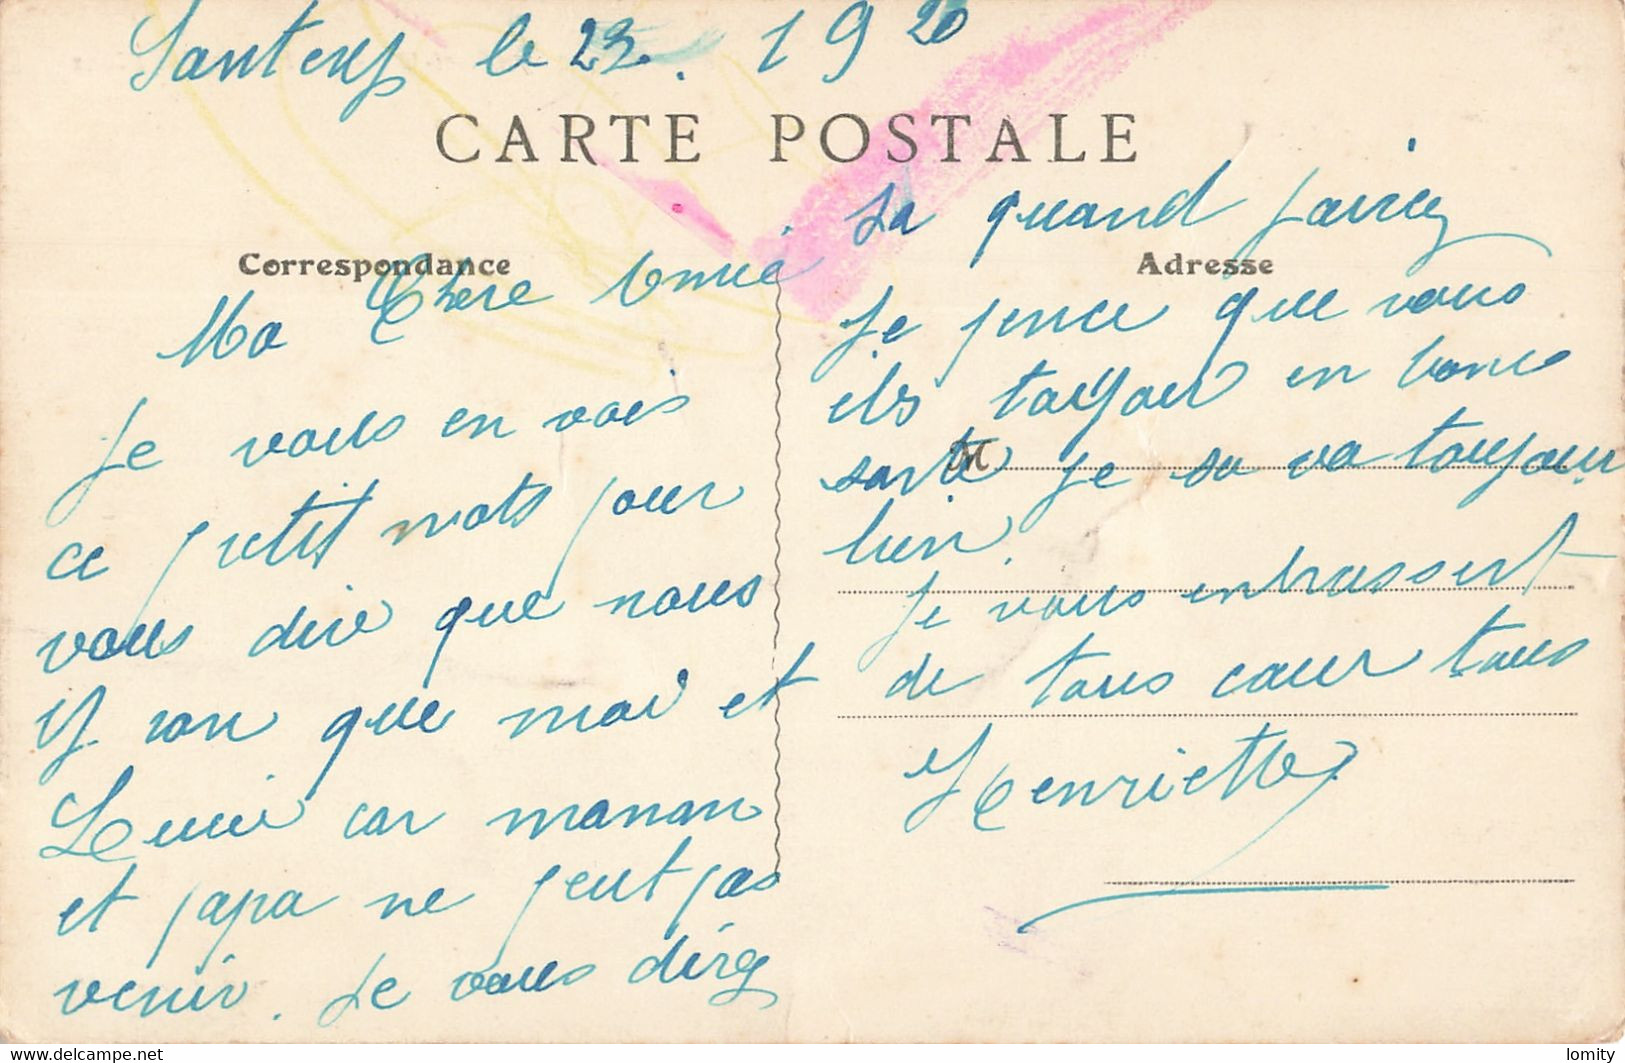 le 23. 1920
CARTE POSTALE
Correspondance
Ma Chère
Je vous en vois
ce petit mots pour
vous dire que nous
y son que moi et
car maman
et papa ne peut pas
venir. Je vous direz
sa quand
Adresse
Je pence que vous
ils toujour en bone
sorte M Je sa va toujour
bien.
Je vous enbrassent
de tous cœur tous
Henriette
delcampe.net
lomity